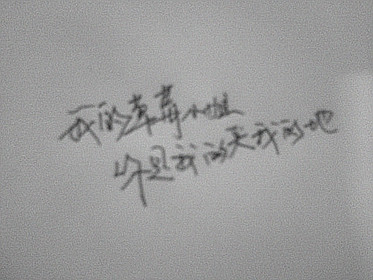 我的草莓小姐
你是我的天我的地